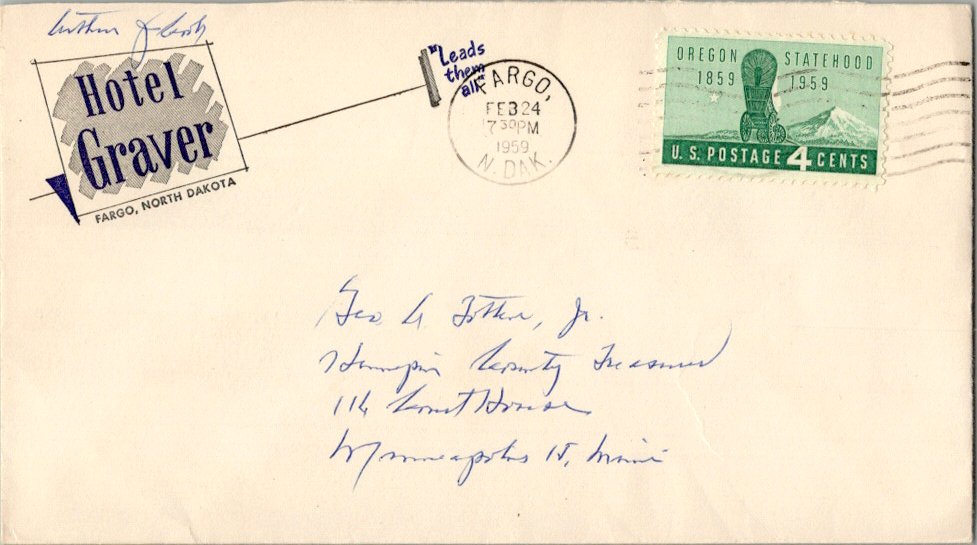 Arthur
Hotel
Graver
FARGO, NORTH DAKOTA
"Leads
them
all"
FARGO,
FEB 24
7 30 PM
1959
N. DAK.
OREGON STATEHOOD
1859 1959
U.S. POSTAGE 4 CENTS
Geo. Jr.
Hennepin County Treasurer
114 Court House
Minneapolis 15, Minn